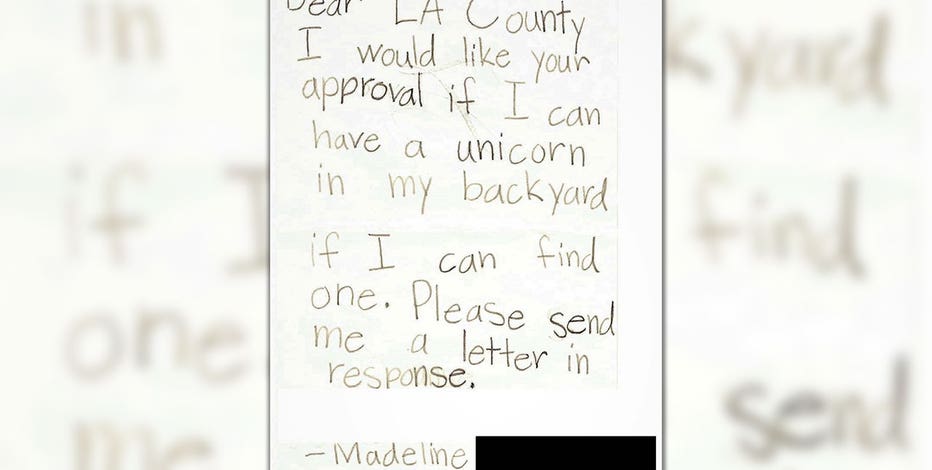 Dear LA County
I would like your
approval if I can
have a unicorn
in my backyard
if I can find
one. Please send
me a letter in
response.
- Madeline